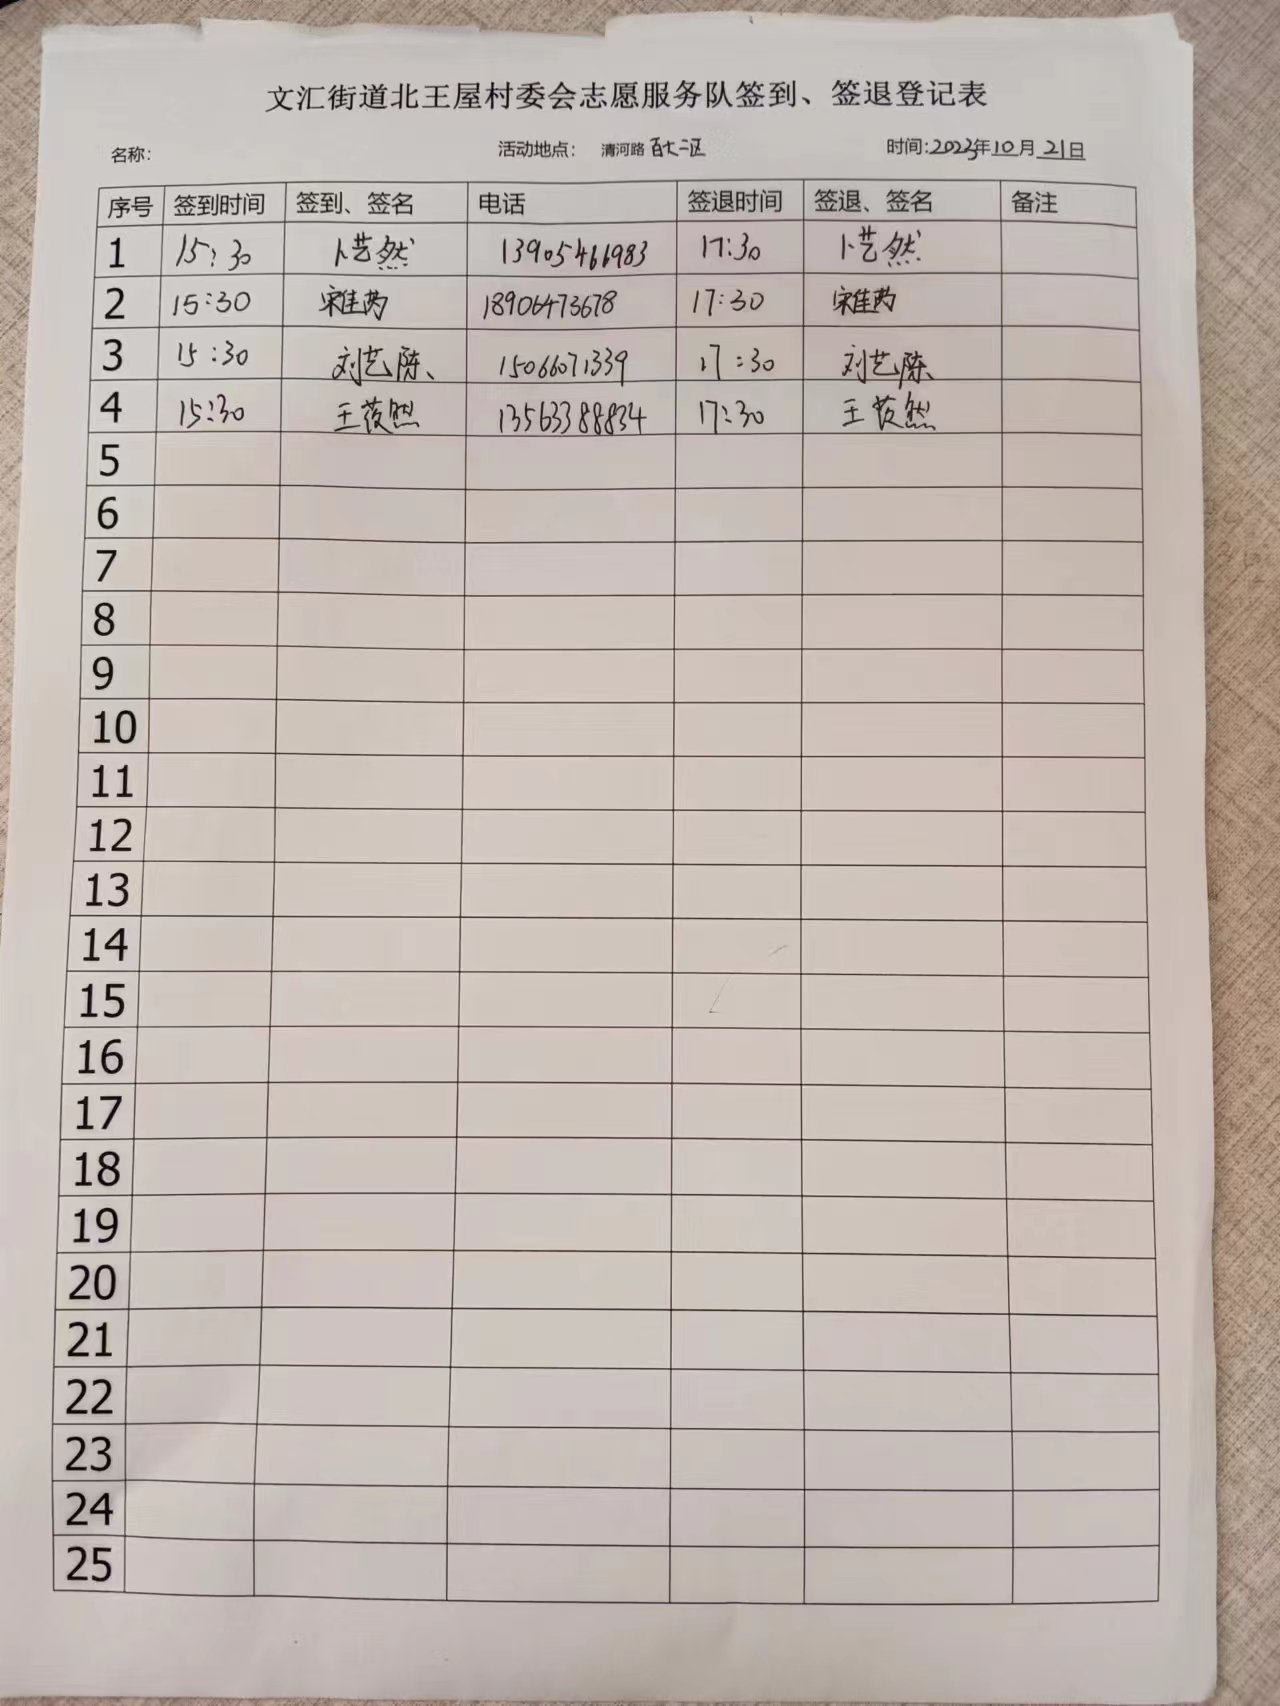 文汇街道北王屋村委会志愿服务队签到、签退登记表
名称: 活动地点: 清河路 百大二区 时间:2023年10月21日
序号 签到时间 签到、签名 电话 签退时间 签退、签名 备注
1 15:30 卜艺然 13905466983 17:30 卜艺然
2 15:30 宋佳芮 18906473678 17:30 宋佳芮
3 15:30 刘艺陈、 15066071339 17:30 刘艺陈、
4 15:30 王莜然 13563388834 17:30 王莜然
5
6
7
8
9
10
11
12
13
14
15
16
17
18
19
20
21
22
23
24
25